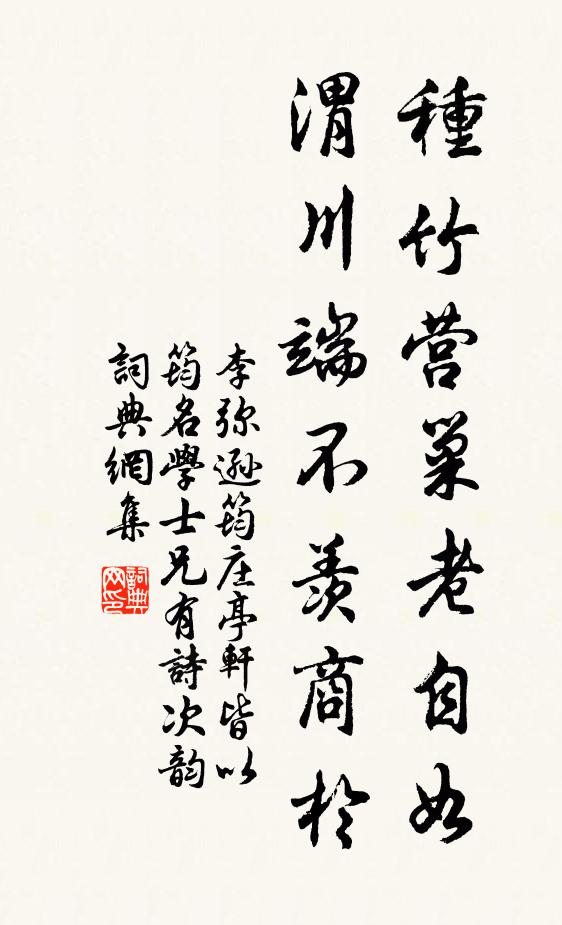 種竹营巢老自如
渭川端不羨商於
李弥遜筠庄亭軒皆以
筠名學士兄有詩次韵
詞典網集
詞典
网印